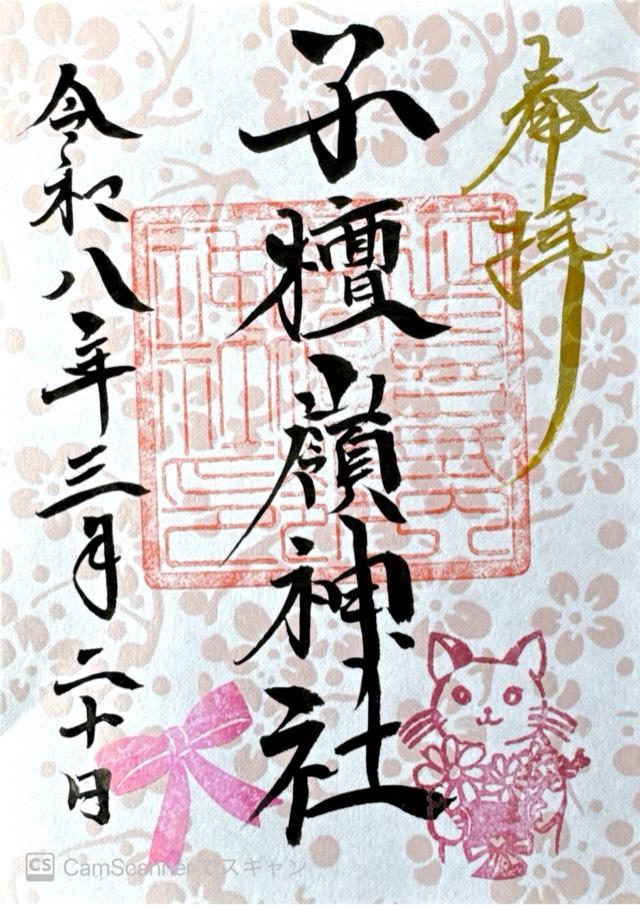 奉拝
子檀嶺神社
令和八年三月二十日
CS CamScannerでスキャン